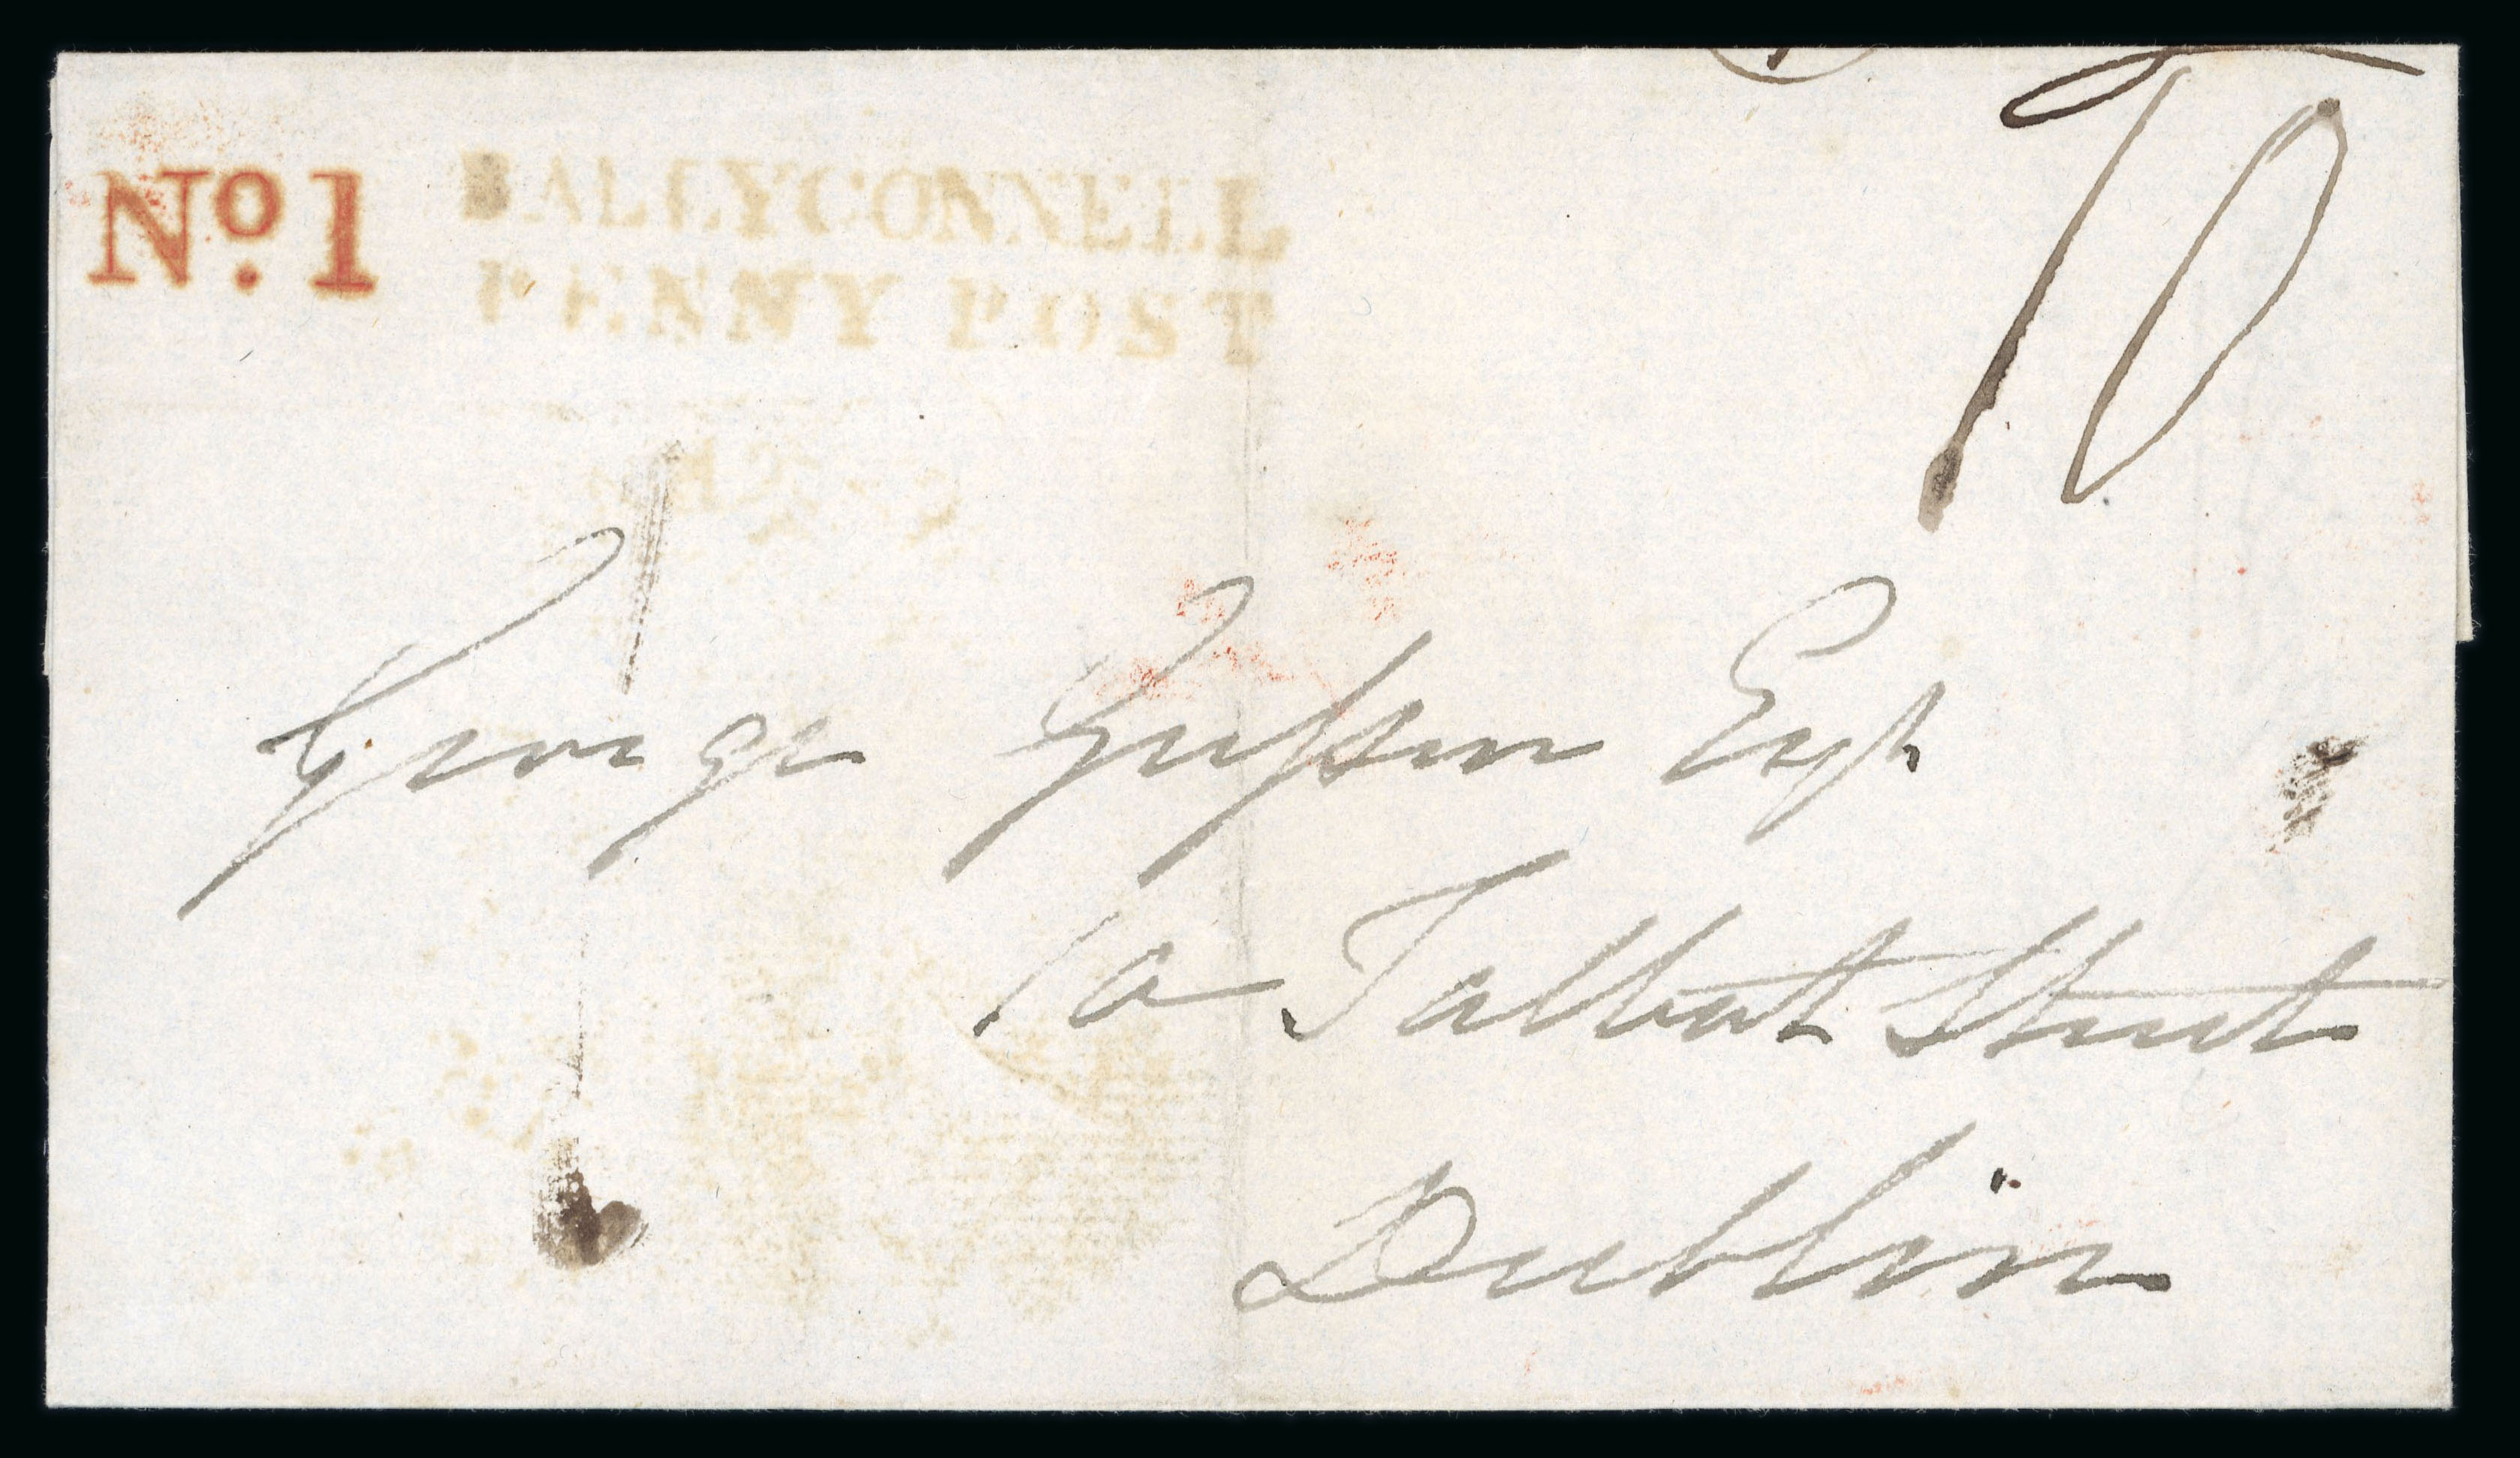 No. 1
BALLYCONNELL
PENNY POST
10
George Gussen Esqr
10 Talbot Street
Dublin